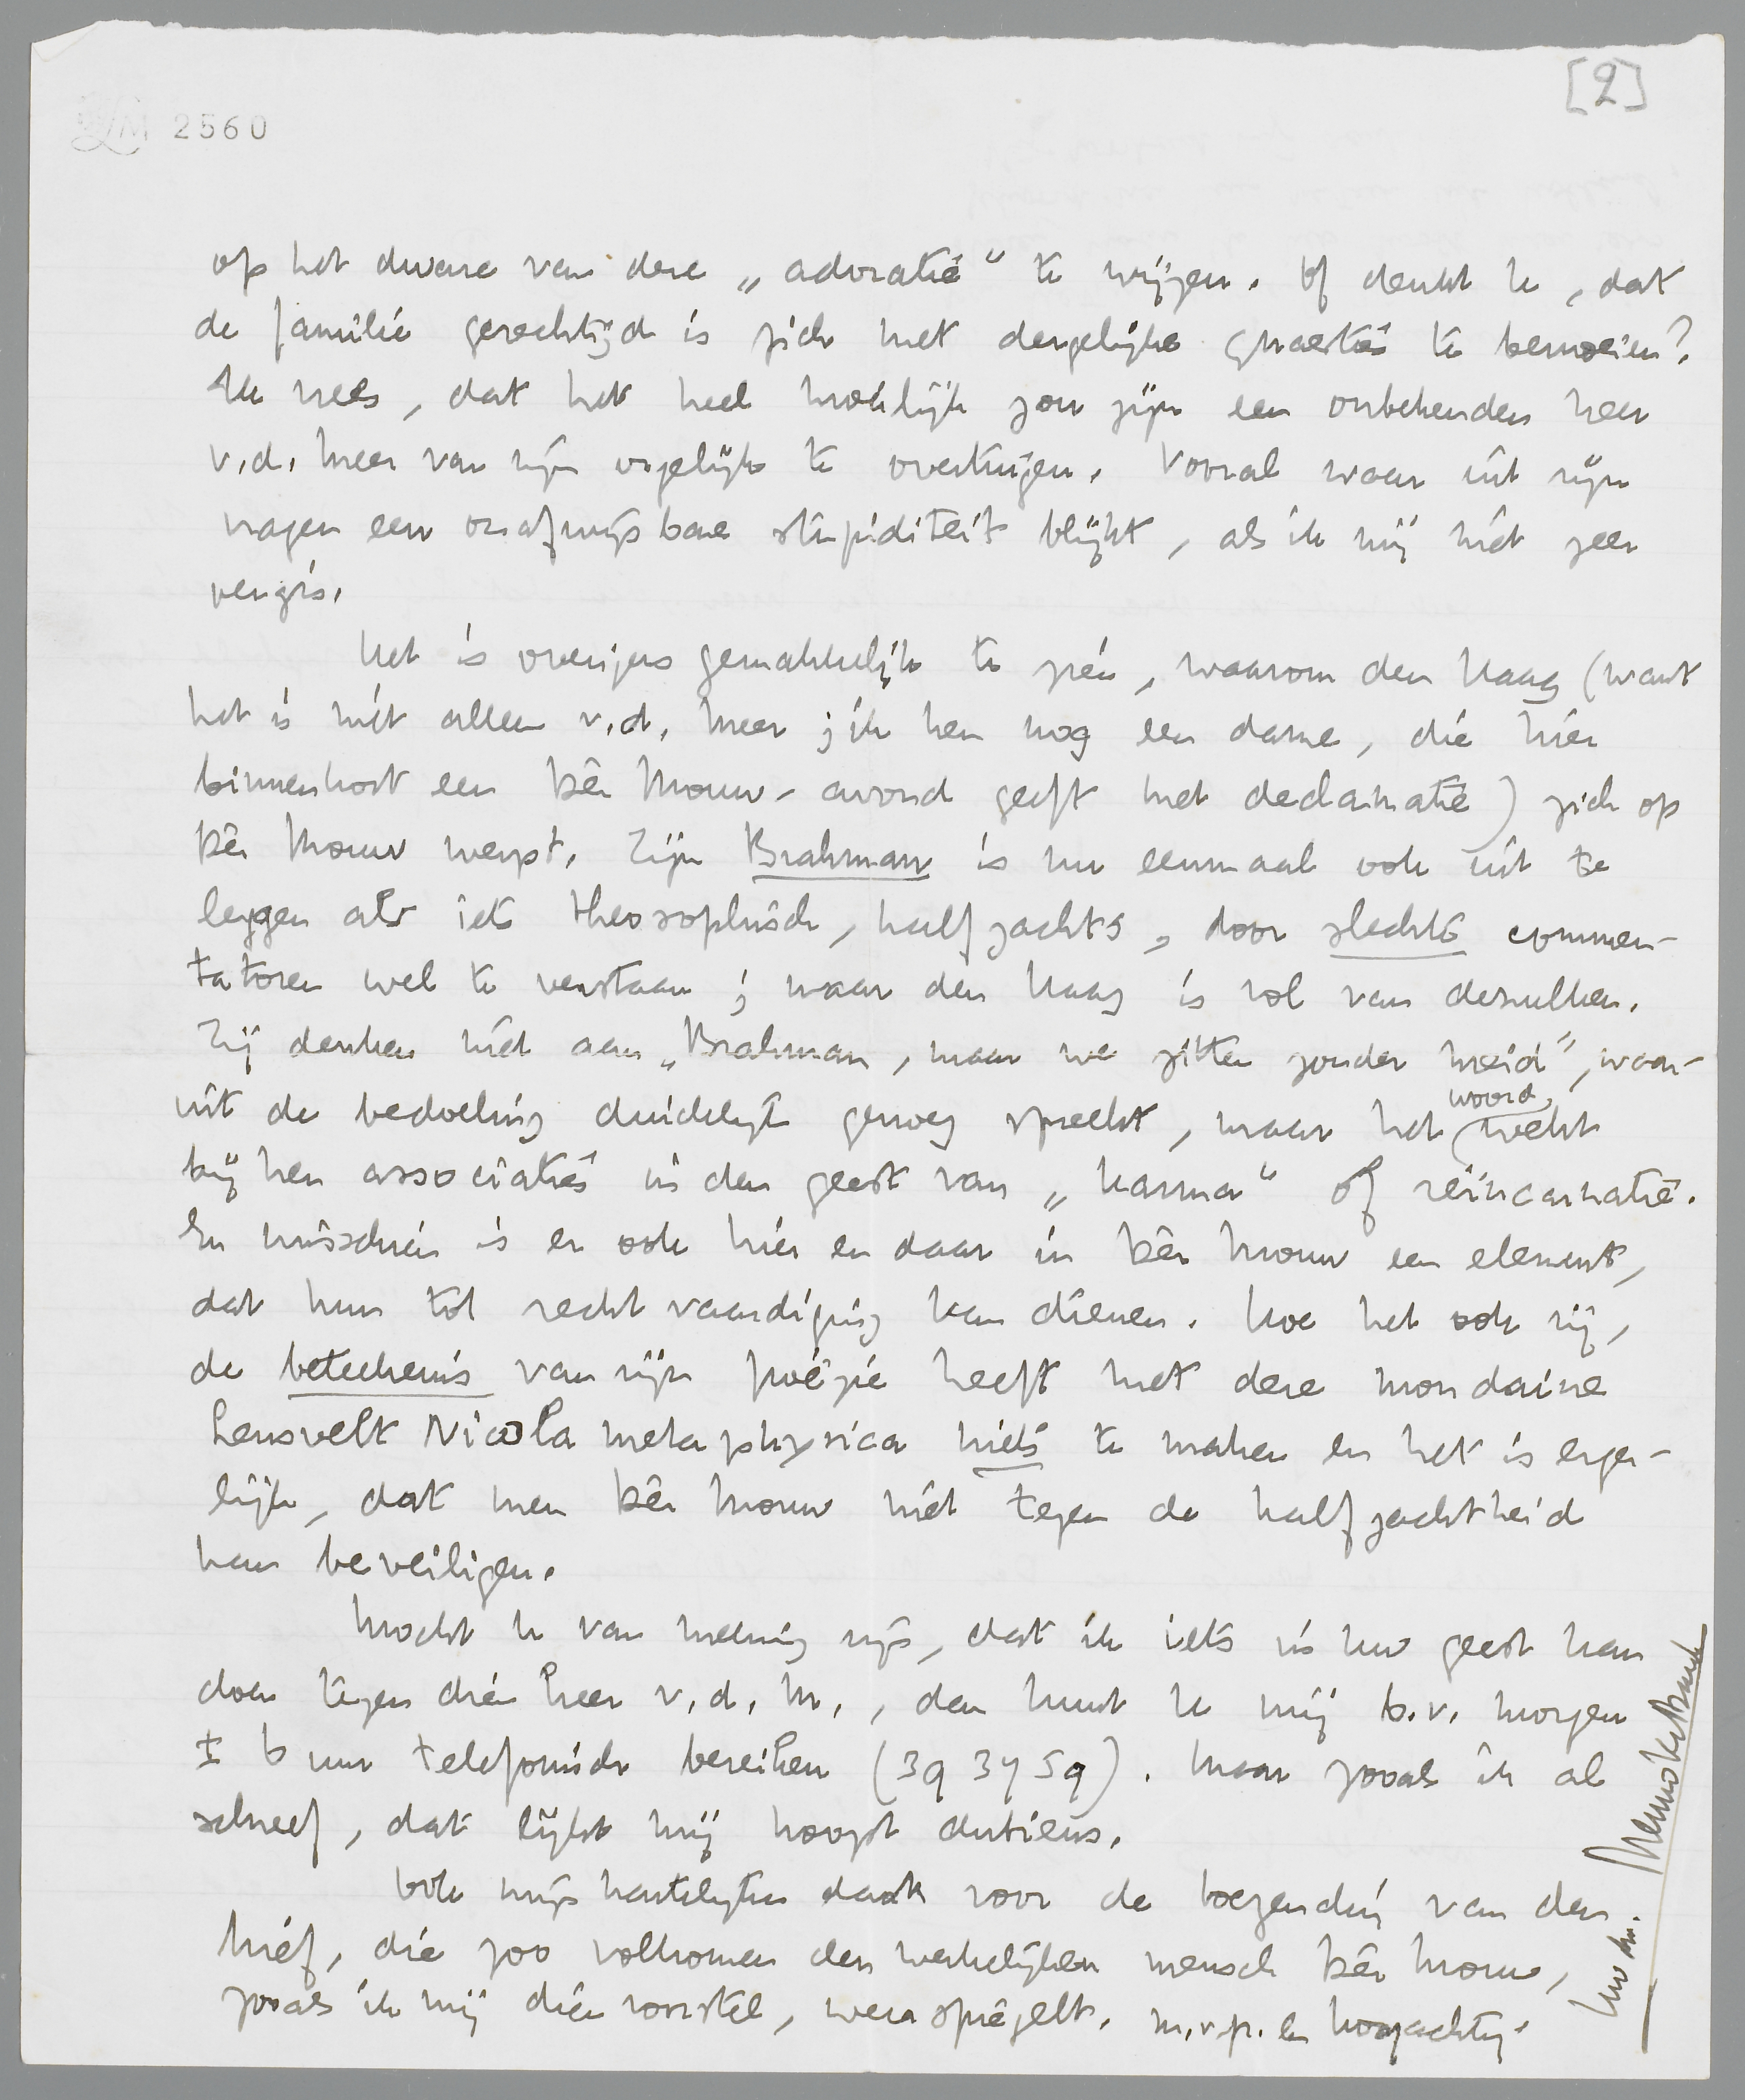 [2]
LM 2560
op het dwaze van deze „adoratie” te wijzen. Of denkt U, dat
de familie gerechtigd is zich met dergelijke quaesties te bemoeien?
Ik vrees, dat het heel moeilijk zou zijn een onbekenden heer
v.d. Meer van zijn ongelijk te overtuigen. Vooral waar uit zijn
vragen een onafwijsbare stupiditeit blijkt, als ik mij niet zeer
vergis.
Het is overigens gemakkelijk te zien, waarom den Haag (want
het is niet alleen v.d. Meer; ik ken nog een dame, die hier
binnenkort een Bèr Mouw-avond geeft met declamatie) zich op
Bèr Mouw werpt. Zijn Brahman is nu eenmaal ook uit te
leggen als iets theosophisch, halfzachts, door slechte commen-
tatoren wel te verstaan; maar den Haag is vol van dezulken.
Zij denken niet aan „Brahman, maar we zitten zonder meid”, waar-
uit de bedoeling duidelijk genoeg spreekt, maar het woord wekt
bij hen associaties in den geest van „karma” of reïncarnatie.
En misschien is er ook hier en daar in Bèr Mouw een element,
dat hun tot rechtvaardiging kan dienen. Hoe het ook zij,
de beteekenis van zijn poëzie heeft met deze mondaine
Lensvelt Nicola metaphysica niets te maken en het is erger-
lijk, dat men Bèr Mouw niet tegen de halfzachtheid
kan beveiligen.
Mocht U van meening zijn, dat ik iets in Uw geest kan
doen tegen dien heer v.d. M., dan kunt U mij b.v. morgen
± 6 uur telefonisch bereiken (393759). Maar zooals ik al
schreef, dat lijkt mij hoogst dubieus.
Ook mijn hartelijken dank voor de toezending van den
brief, die zoo volkomen den werkelijken mensch Bèr Mouw,
zooals ik mij dien voorstel, weerspiegelt. M.v.p. en hoogachting.
Uw dw. Menno ter Braak